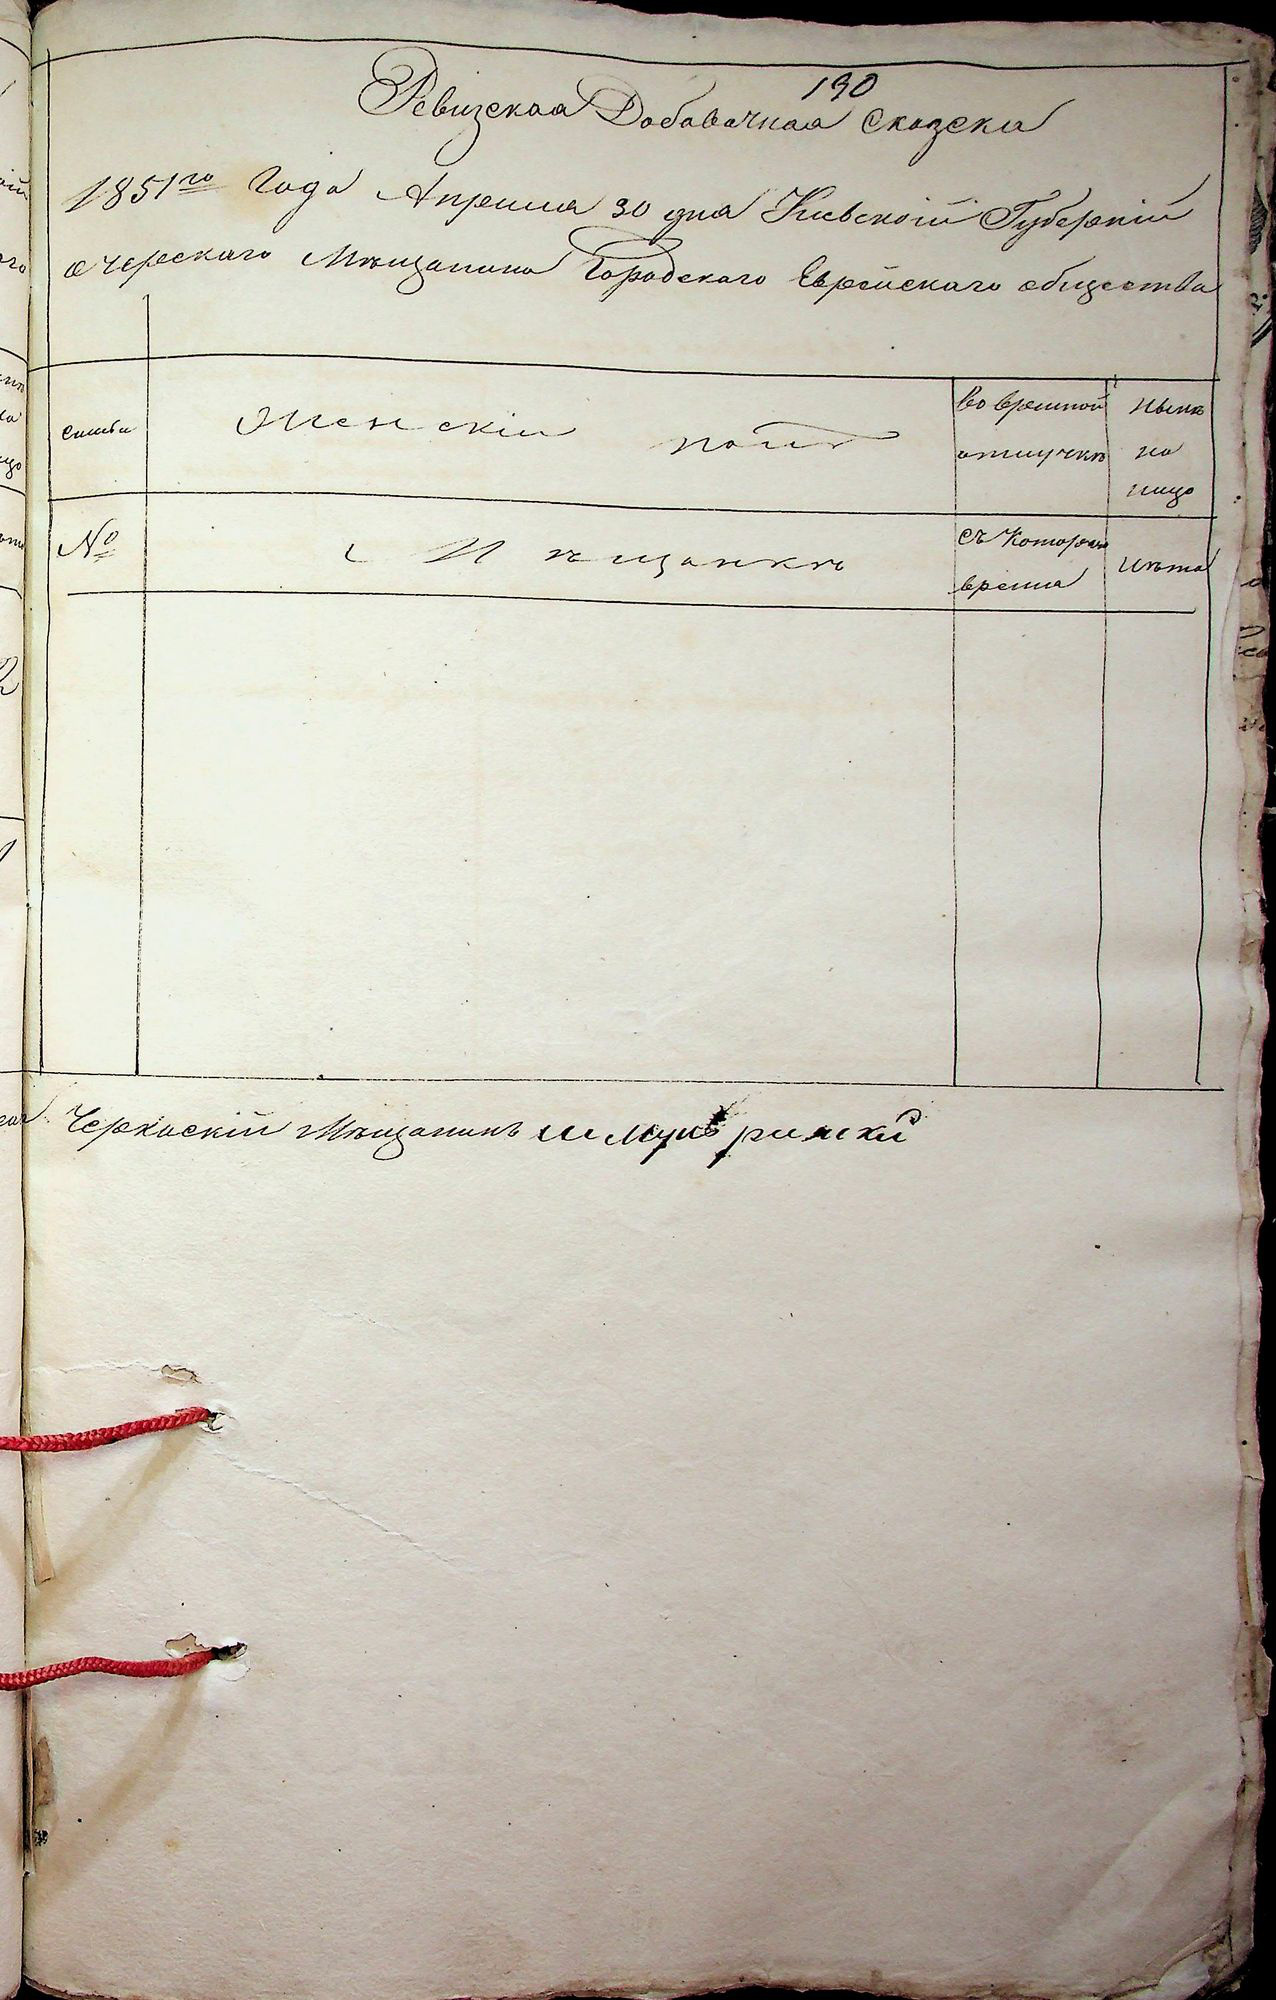 190
Ревизская Добавочная сказска
1851го Года Апреля 30 дня Киевской Губерніи
Мѣщанина Городскаго Еврейскаго общества
семьи
Женскій полъ
во временной
отлучкѣ
нынѣ
на
лицо
№
Мѣщанкѣ
съ Котораго
время
лѣта
Черкаскій Мѣщанинъ шмуль римскій